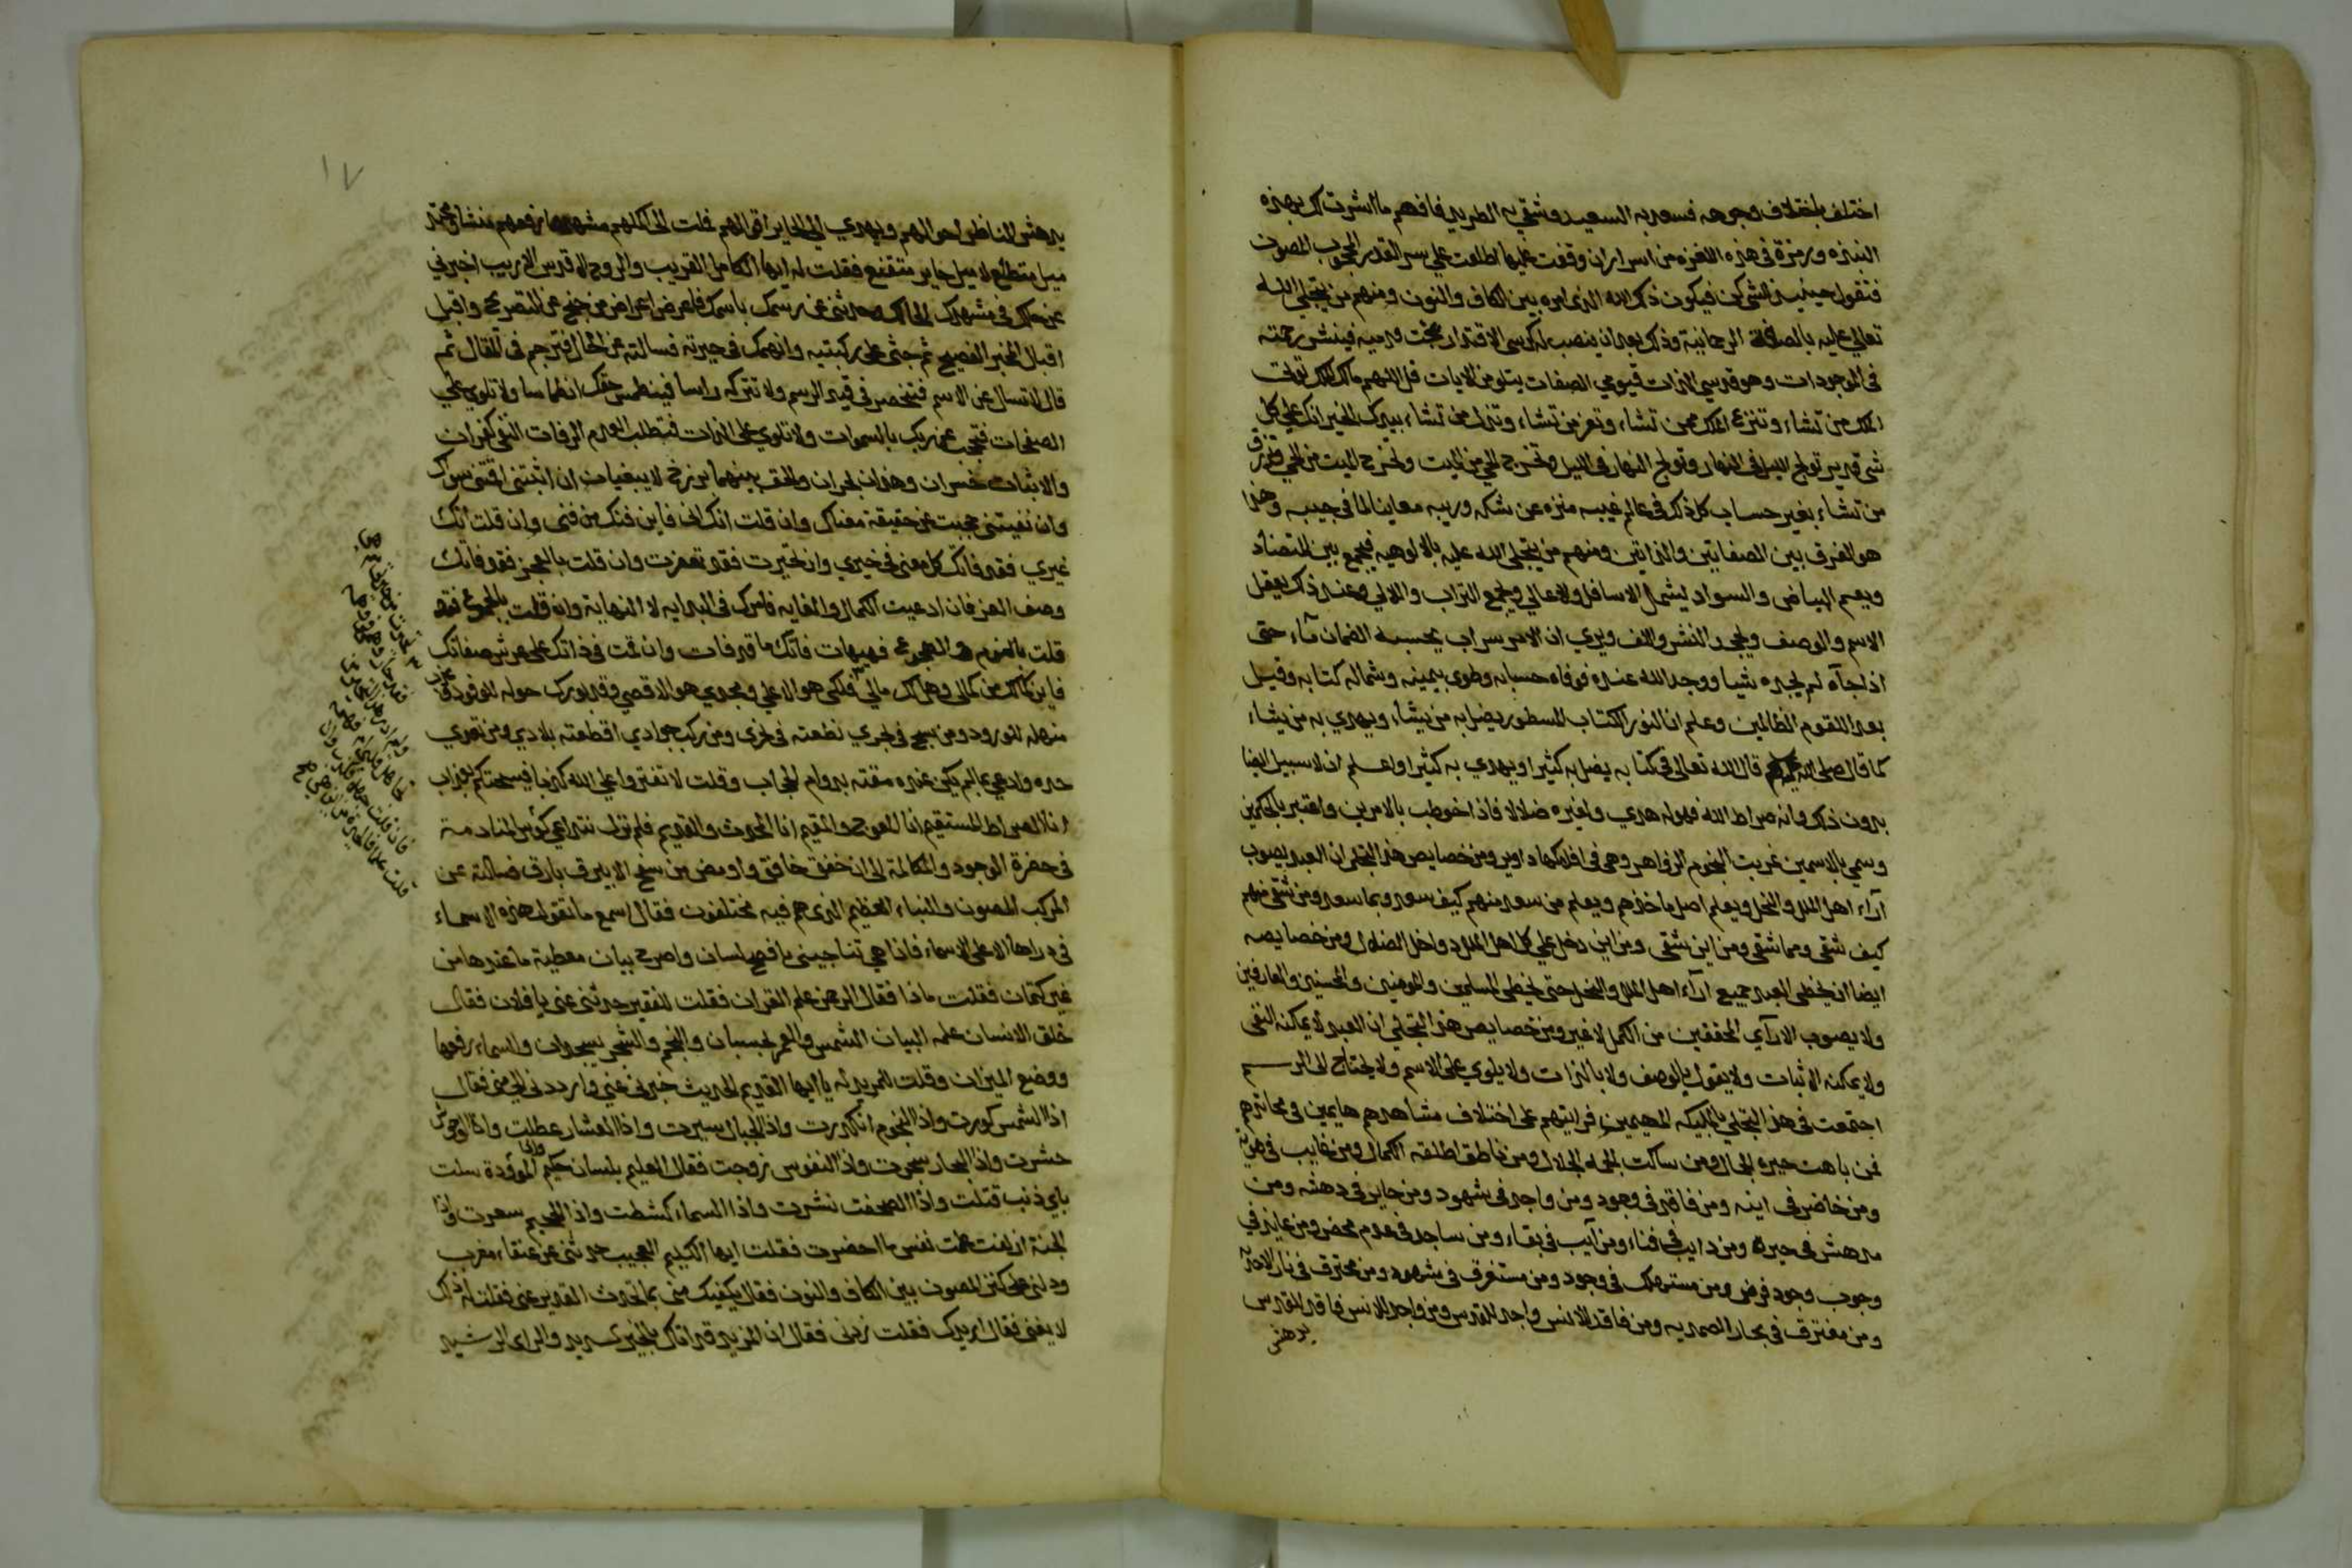 اختلف باختلاف وجوهه فسعد به السعيد وشقي به الطريد فافهم ما اشرت لك بهذه
النبذة ورمزة في هذه اللغزة من اسرار ان وقفت عليها اطلعت على سر القدر المحجوب المصون
فتقول حينيذ للشي كن فيكون ذلك الله الذي امره بين الكاف والنون ومنهم من يتجلى الله
تعالى عليه بالصفة الرحمانية وذلك بعد ان ينصب له كرسي الاقتدار تحت قدميه فينشر رحمته
في الموجودات وهو قدسي الذات قيومي الصفات يتلو من الايات قل اللهم مالك الملك تؤتي
الملك من تشاء وتنزع الملك ممن تشاء وتعز من تشاء وتذل من تشاء بيدك الخير انك على كل
شي قدير تولج الليل في النهار وتولج النهار في الليل وتخرج الحي من الميت وتخرج الميت من الحي وترزق
من تشاء بغير حساب كل ذلك في عالم غيبه منزه عن شكه وريبه معاينا لما في جيبه وهذا
هو الفرق بين الصفاتيين والذاتيين ومنهم من يتجلى الله عليه بالالوهيه فيجمع بين التضاد
ويعم البياض والسواد ليشمل الاسافل والاعالي ويجمع التراب واللالي وعند ذلك يعقل
الاسم والوصف ويجحد النشر واللف ويري ان الامر سراب يحسبه الضمان مآء حتى
اذا جآه لم يجده شيا ووجد الله عنده فوفاه حسابه وطوى بيمينه وشماله كتابه وقيل
بعدا للقوم الظالمين وعلم ان النور الكتاب المسطور يضل به من يشاء ويهدي به من يشاء
كما قال قال الله تعالى في كتابه يضل به كثيرا ويهدي به كثيرا واعلم ان لا سبيل ايضا
بدون ذلك وانه صراط الله فهو له هدي ولغيره ضلالا فاذا خوطب بالامرين واعتبر بالحكمين
وسمي بالاسمين غربت النجوم الزواهر وهي في افلاكها دواير ومن خصايص هذا التجلي ان العبد يصوب
آراء اهل الملل والنحل ويعلم اصل ماخذهم ويعلم من سعد منهم كيف سعد وبما سعد ومن شقي منهم
كيف شقى ومما شقى ومن اين شقى ومن اين دخل على كل اهل الملل دواخل الضلال ومن خصايصه
ايضا ان يخطى العبد جميع آراء اهل الملل والنحل حتى يخطى المسلمين والمومنين والمحسنين والعارفين
ولا يصوب الا راي المحققين من الكمل لا غير ومن خصايص هذا التجلي ان العبد لا يمكنه النفي
ولا يمكنه الاثبات ولا يقول بالوصف ولا بالذات ولا يلوي على الاسم ولا يحتاج الى الرسم
اجتمعت في هذا التجلي بالمليكه المهيمين فرايتهم على اختلاف مشاهدهم هايمين في محاتدهم
فمن باهت حيره الجمال ومن ساكت الجمه الجلال ومن ناطق اطلقه الكمال ومن غايب في هويته
ومن حاضر في اينه ومن فاقد في وجود ومن واجد في شهود ومن حاير في دهشه ومن
مدهش في حيرة ومن دايب في فناء ومن آيب في بقاء ومن ساجد في عدم محض ومن عابد في
وجوب وجود فرض ومن مستهلك في وجود ومن مستغرق في شهود ومن محترق في نار الاحديه
ومن مغترف في بحار الصمديه ومن فاقد للانس واجد للقدس ومن واجد للانس فاقد للقدس
يدهش
١٧
يدهش الناظر احوالهم ويهدي الى الحاير اقوالهم فملت الى اكملهم مشهدا وارفعهم منشأ ومحتد
ميل متطلع لا ميل حاير متقنع فقلت له ايها الكامل القريب والروح الاقدس الاريب اخبرني
عن حالك في مشهدك الحالك وحدثني عن رسمك باسمك فاعرض اعراض من جنح عن التصريح واقبل
اقبال المخبر الفصيح ثم جثى على ركبتيه وانهمك في حيرته فسالته عن الحال فترجم في المقال ثم
قال لا تسال عن الاسم فتنحصر في قيد الرسم ولا تتركه راسا فينطمس حقك انطماسا ولا تلوي على
الصفات فتحجب عن ربك بالسموات ولا تلوي على الذات فتطلب العدم الرفات النفي كفران
والاثبات خسران وهذان بحران والحق بينهما برزخ لا يبغيان ان اثبتني اقتني سواك
وان نفيتني حجبت عن حقيقة معناك وان قلت انك انا فاين فنك من فني وان قلت انك
غيري فقد فاتك كل معنى في خيري وان تحيرت فقد تعجزت وان قلت بالعجز فقد فاتك
وصف العز فان ادعيت الكمال والغايه فامرك في البدايه لا النهاية وان قلت بالمجموع فقد
قلت بالنوم الهجوع فهيهات فاتك ما قد فات وان قمت في ذاتك على عرش صفاتك
فاين كمالك من كمالى وهل لك مالي فلكى هو الاعلي ومجدي هو الاقصي وقد بورك حوله للوفود في
منهله للورود ومن سبح في بحري نظمته في نحري ومن ركب جوادي اقطعته بلادي ومن تعدي
حده وادعي بما لم يكن عنده مقته بدوام الحجاب وقلت لا تفتروا على الله كذبا فيسحتكم بعذاب
انا الصراط المستقيم انا المعوج والمقيم انا المحدث والقديم فلم نزل نتداعي كؤس المنادمة
في حضرة الوجود والمكالمة الى ان خفق خافق واومض من سفح الابيرق بارق فسالته عن
المركب المصون والنباء العظيم الذي هم فيه مختلفون فقال اسمع ما تقوله هذه الاسماء
في دراها الاعلى الاسماء فاذا هي تناجيني بافصح لسان واصرح بيان معطية ما عندها من
غير كتمان فقلت ماذا فقال الرحمن علم القران فقلت للفقير حدثني عني يا فلان فقال
خلق الانسان علمه البيان الشمس والقمر بحسبان والنجم والشجر يسجدان والسماء رفعها
ووضع الميزان وقلت للمريد له يا ايها القديم الحديث خبرني عني وارددني الى مني فقال
اذا الشمس كورت واذا النجوم انكدرت واذا الجبال سيرت واذا العشار عطلت واذا الوحوش
حشرت واذا البحار سجرت واذا النفوس زوجت فقال العليم بلسان حكيم واذا الموؤدة سلت
باي ذنب قتلت واذا الصحف نشرت واذا السماء كشطت واذا الجحيم سعرت واذا
الجنة ازلفت علمت نفس ما احضرت فقلت ايها الكليم العجيب حدثني عن عنقاء مغرب
ودلني على كنز المصون بين الكاف والنون فقال يكفيك مني بما تحدث القدير عني فقلت له ذلك
لا يغني فقال لم يدرك فقلت زدني فقال ان المزيد قد اتاك بالخير سديد والراي الرشيد